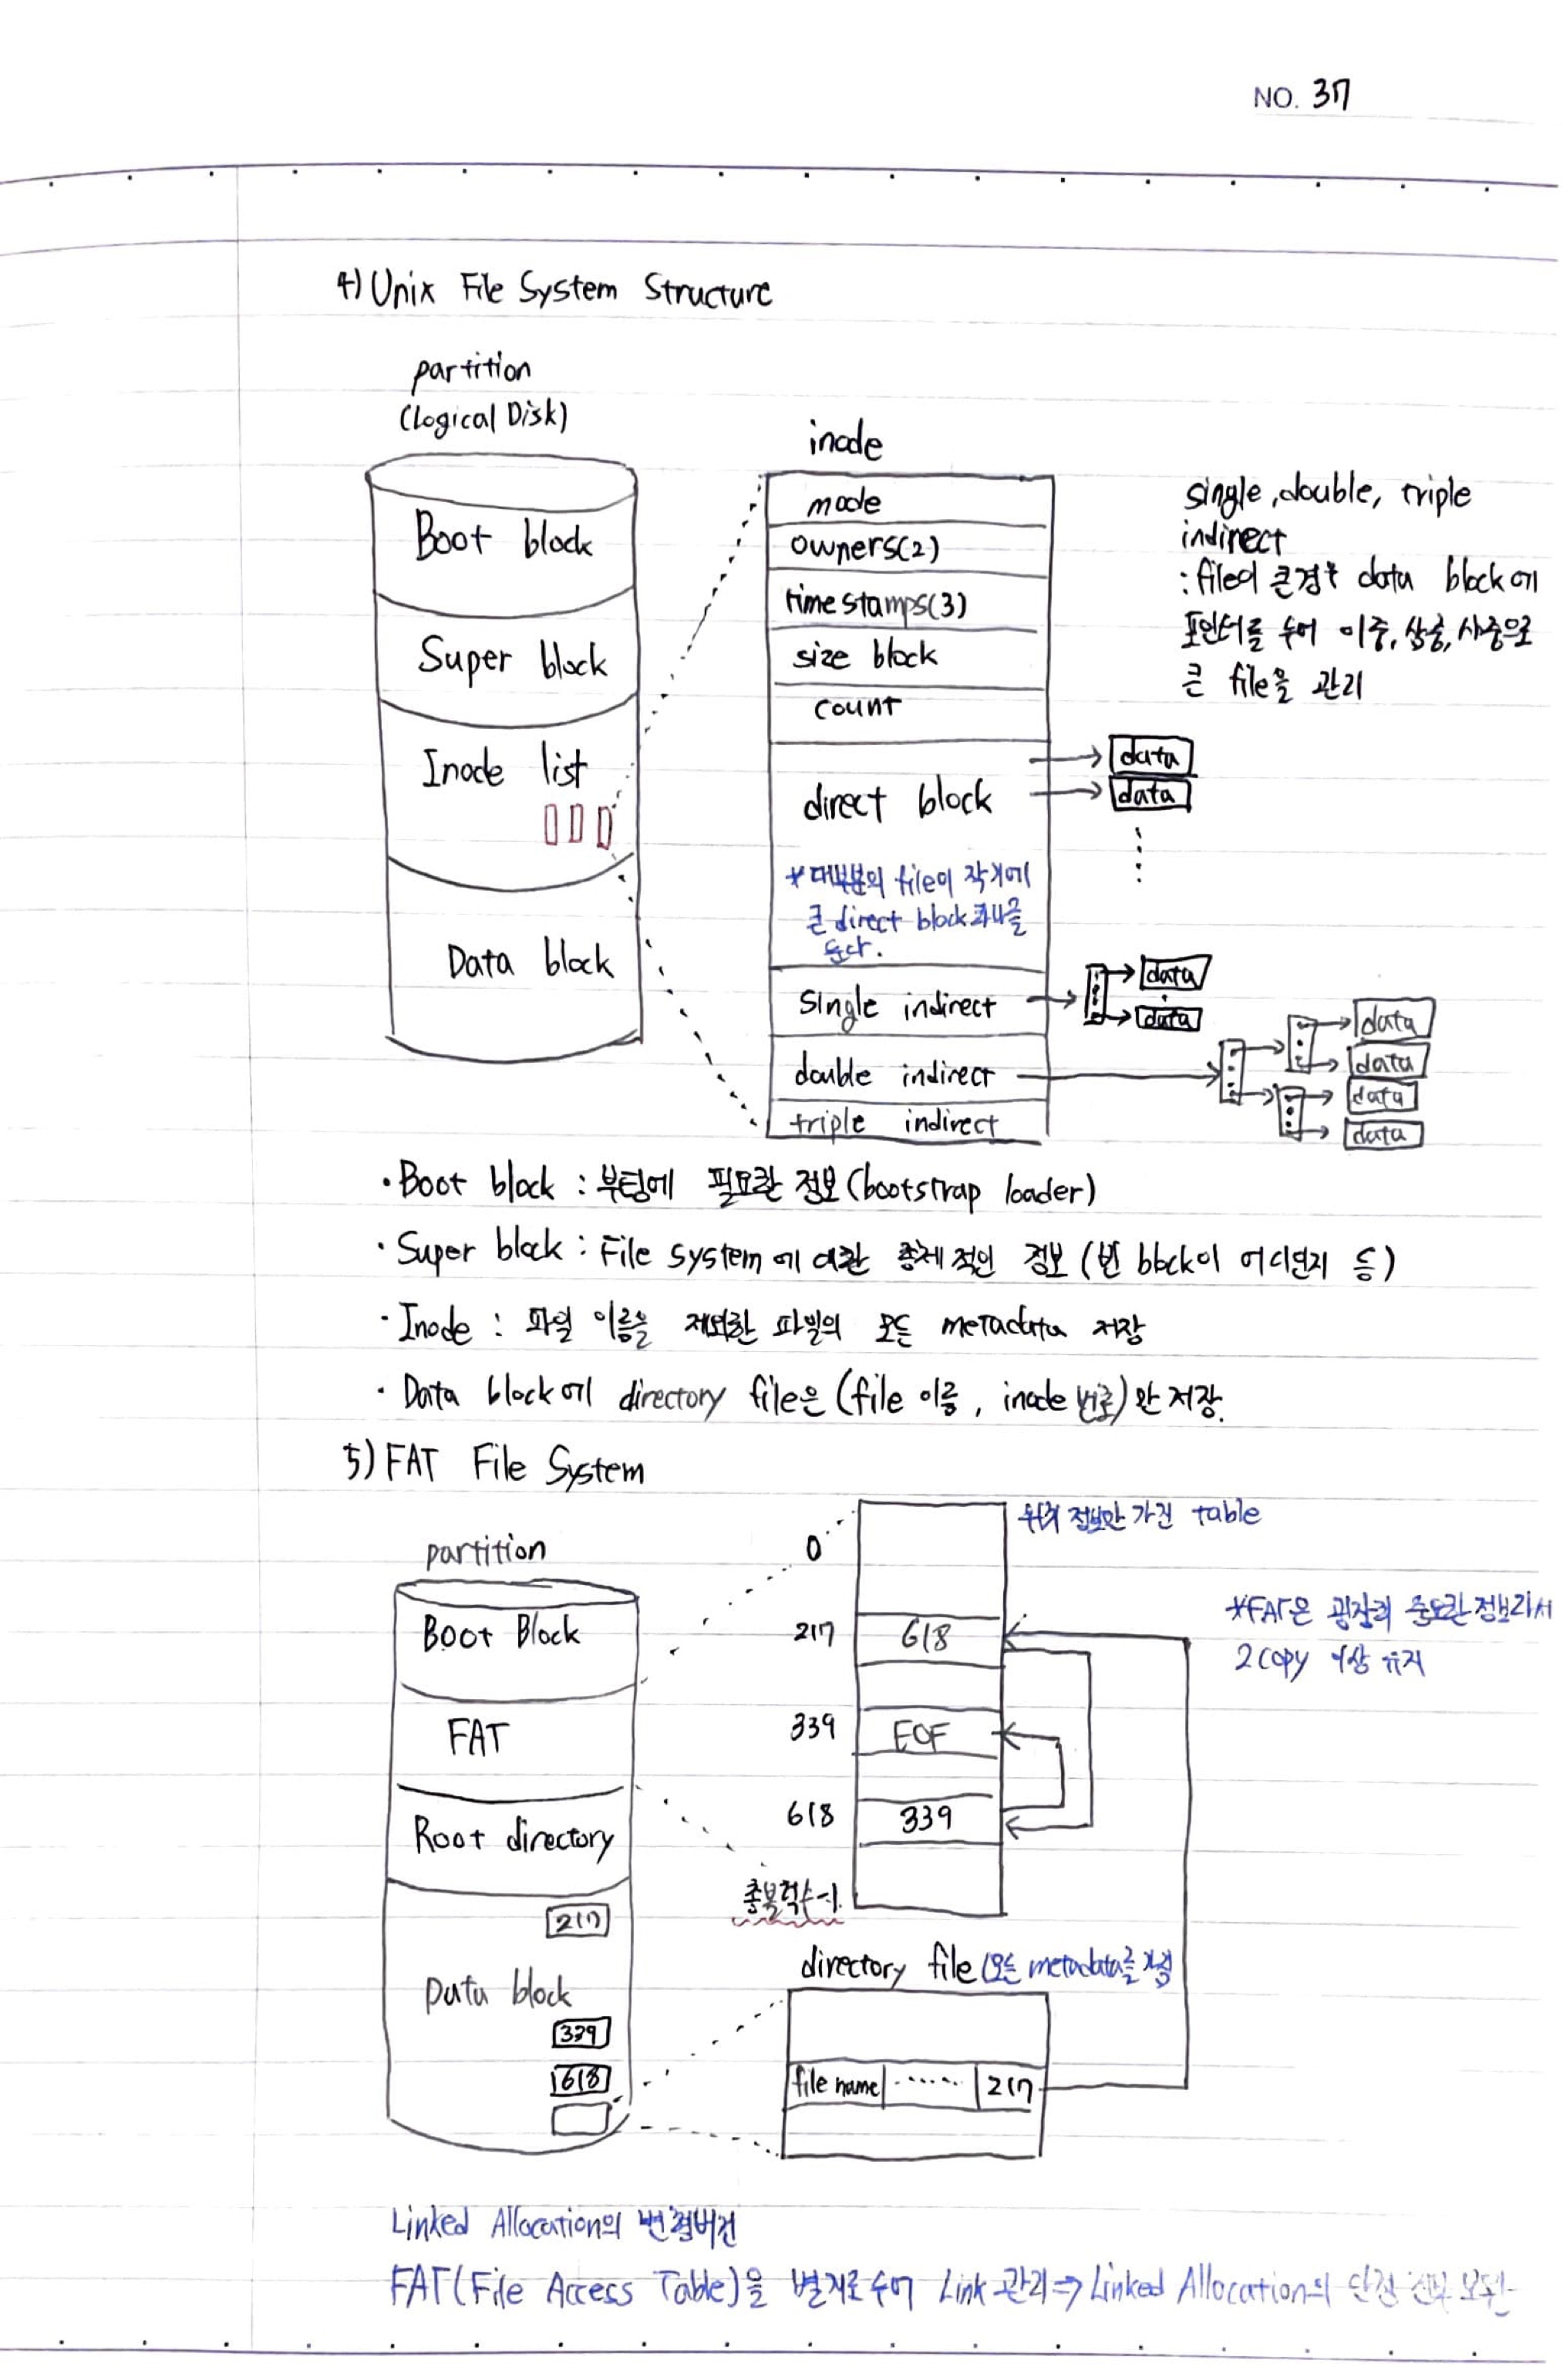 NO. 37
4) Unix File System Structure
partition
(Logical Disk)
Boot block
Super block
Inode list
Data block
inode
mode
owners(2)
timestamps(3)
size block
count
direct block
* 대부분의 file이 작기에
큰 direct block 하나를
둔다.
Single indirect
double indirect
triple indirect
data
data
data
data
data
data
data
data
single, double, triple
indirect
: file이 큰 경우 data block에
포인터를 두어 이중, 삼중, 사중으로
큰 file을 관리
• Boot block : 부팅에 필요한 정보 (bootstrap loader)
• Super block : File system에 대한 총체적인 정보 (빈 block이 어디인지 등)
• Inode : 파일 이름을 제외한 파일의 모든 metadata 저장
• Data block에 directory file은 (file 이름, inode 번호)만 저장.
5) FAT File System
partition
Boot Block
FAT
Root directory
217
Data block
339
618
0
217
339
618
총블럭수-1
618
EOF
339
위치 정보만 가진 table
*FAT은 굉장히 중요한 정보라서
2copy 이상 유지
directory file (모든 metadata를 가짐
file name ...... 217
Linked Allocation의 변형버전
FAT(File Access Table)을 별개로 두어 Link 관리 ⇒ Linked Allocation의 단점 전부 보완